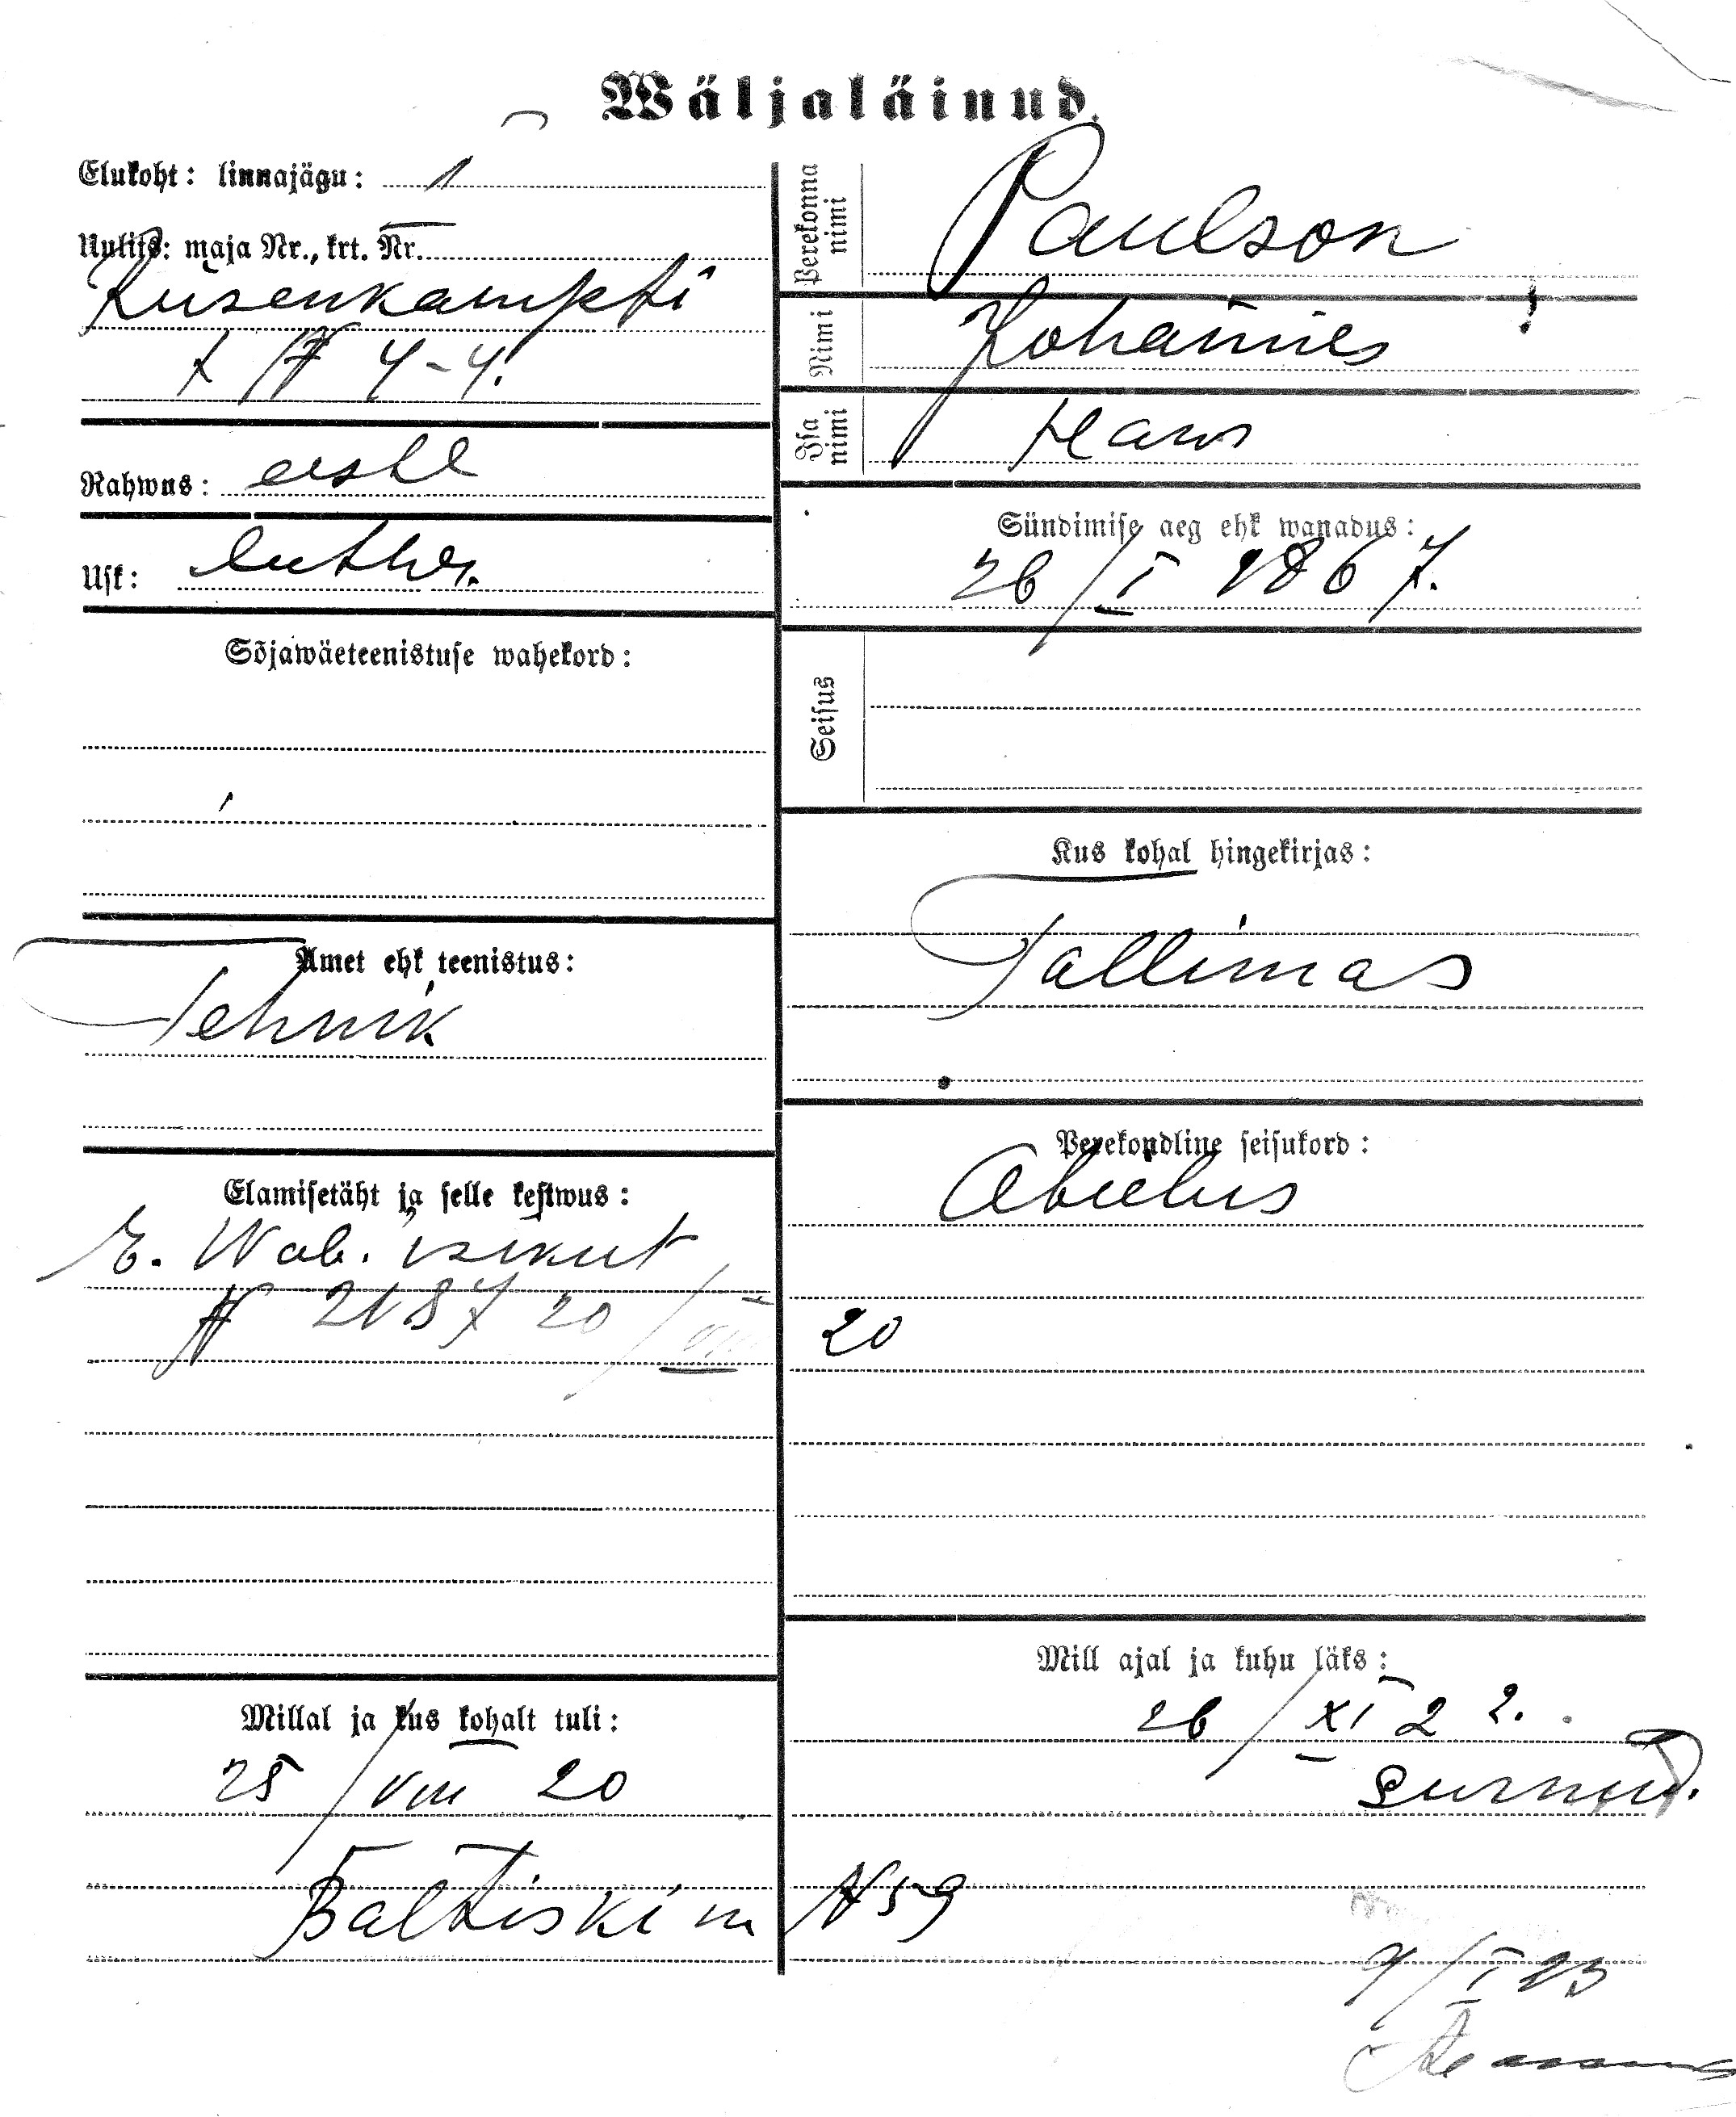 Wäljaläinud.
Elukoht: linnajägu: 1
Uulits: maja Nr., krt. Nr.
Kusenkampfi
t № 4-4.
Rahwus: eestl
Usk: luther.
Sõjawäeteenistuse wahekord:
Amet ehk teenistus:
Tehnik
Elamisetäht ja selle kestwus:
E. Wab. isikut
№ 2187 20/VIII 20
Millal ja kus kohalt tuli:
25/VIII 20
Baltiski m № 59
Perekonna nimi
Paulson
Nimi
Johannes
Isa nimi
Hans
Sündimise aeg ehk wanadus:
26/I 1867.
Seisus
Kus kohal hingekirjas:
Tallinnas
Perekondline seisukord:
Abielus
Mill ajal ja kuhu läks:
26/XI 22.
Surnud.
9/I 23